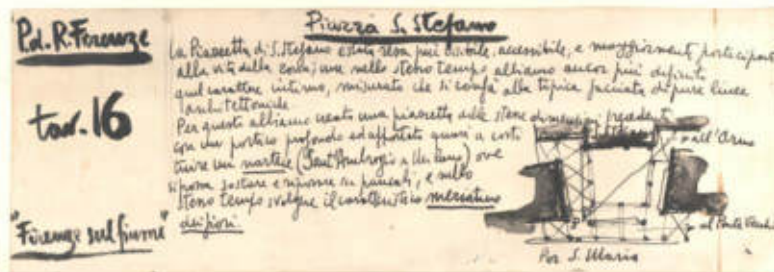 Piazza S. Stefano
P.d.R. Firenze
tav. 16
"Firenze sul fiume"
La Piazzetta di S. Stefano è stata resa più visibile, accessibile, e maggiormente partecipante
alla vita della zona; ma nello stesso tempo abbiamo ancor più definito
quel carattere intimo, misurato che si confà alla tipica facciata di pure linee
architettoniche
Per questo abbiamo creato una piazzetta delle stesse dimensioni precedenti
con un portico profondo ed appartato quasi a costi
tuire un nartece (Sant'Ambrogio a Milano) ove
si possa sostare e riposare su panconi, e nello
stesso tempo svolgere il caratteristico mercatino
dei fiori.
all'Arno
al Ponte Vecchio
Por S. Maria